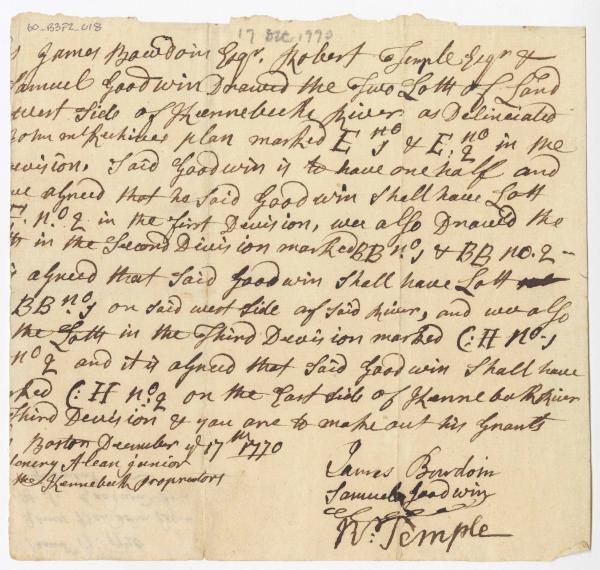 60-B3F2_U18
17 DEC 1770
s James Bowdoin Esqr. Robert Temple Esqr &
Samuel Goodwin Drawed the Two Lotts of Land
west Side of Kennebeck River as Deliniated
John mcKechnies plan marked E no 1 & E. no 2 in the
evision. Said Goodwin is to have one half and
ve agreed that he Said Goodwin Shall have Lott
E. no 2 in the first Division, wee also Drawed the
tts in the Second Division marked BB no. 1 & BB no. 2 -
is agreed that Said Goodwin Shall have Lott
BB no 1 on said west side of said River, and we also
the Lotts in the Third Devision marked C:H no-1
no 2 and it is agreed that Said Goodwin Shall have
rked C:H no 2 on the East side of Kennebeck River
Third Devision & you are to make out his Grants
Boston December ye 17th 1770
Henery Alean junior
the Kennebeck Proprietors
James Bowdoin
Samuel Goodwin
Rt. Temple